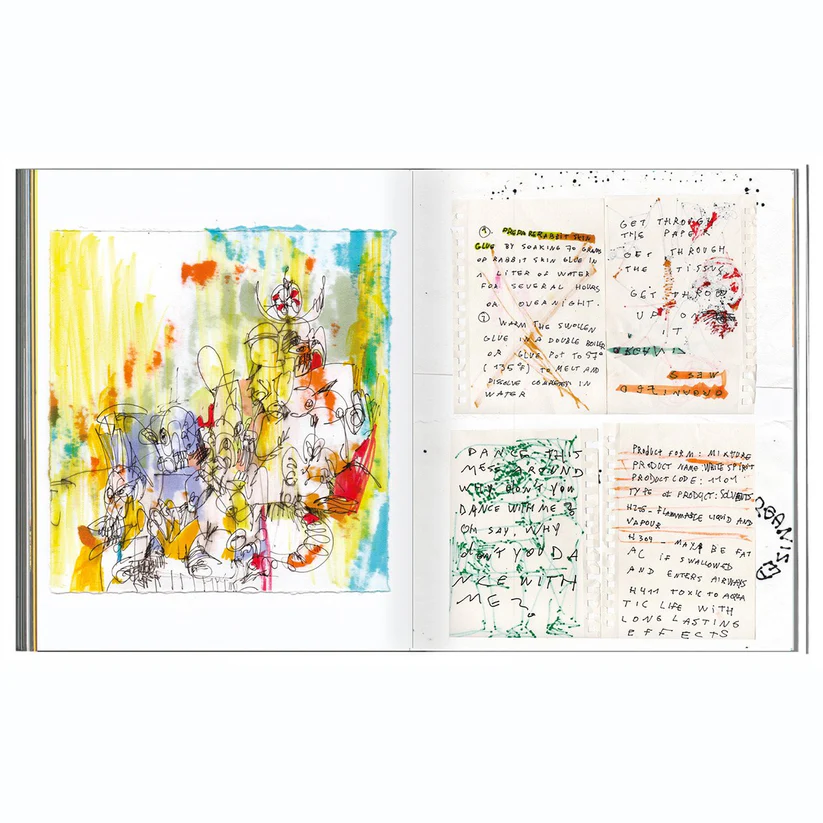 ④. PREPARE RABBIT SKIN
GLUE BY SOAKING 70 GRAMS
OF RABBIT SKIN GLUE IN
A LITER OF WATER
FOR SEVERAL HOURS
OR OVERNIGHT.
WARM THE SWOLLEN
GLUE IN A DOUBLE BOILER
OR GLUE POT TO 57°
(135°F) TO MELT AND
DISSOLVE COMPLETELY IN
WATER
GET THROUGH
THE PAPER
GET THROUGH
THE TISSUS
GET THROO
UP ON
IT
DANCE THIS
MESS AROUND
WHY DON'T YOU
DANCE WITH ME?
OH SAY, WHY
DON'T YOU DA
NCE WITH
ME?
PRODUCT FORM: MIXTURE
PRODUCT NAME: WHITE SPIRIT
PRODUCT CODE: 1101
TYPE OF PRODUCT: SOLVENTS
H226 - FLAMMABLE LIQUID AND
VAPOUR
H304 - MAY BE FAT
AL IF SWALLOWED
AND ENTERS AIRWAYS
H411 TOXIC TO AQUA
TIC LIFE WITH
LONG LASTING
EFFECTS